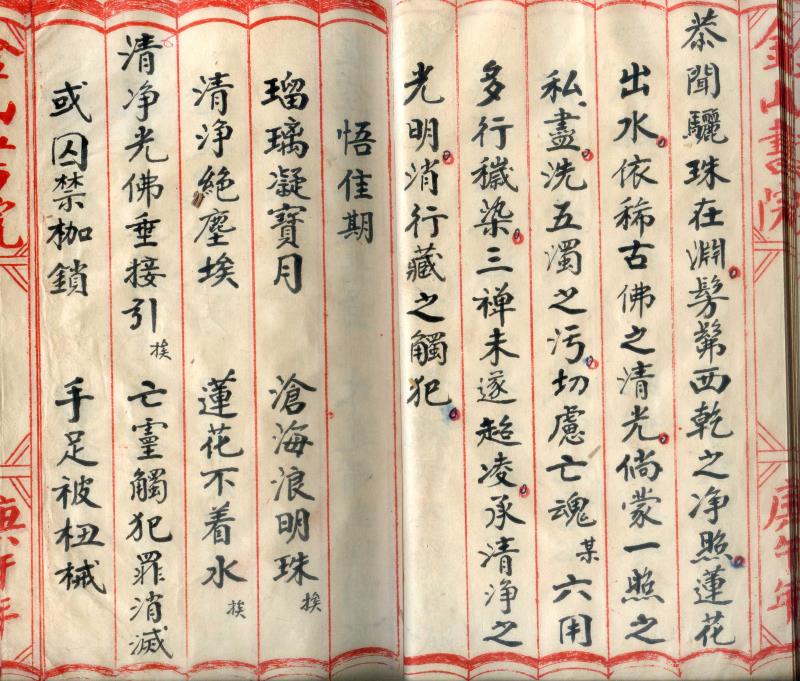 金山書院 庚午年
恭聞驪珠在淵髣髴西乾之净照蓮花
出水依稀古佛之清光倘蒙一照之
私盡洗五濁之污切慮亡魂某六用
多行穢染三禅未遂超凌承清净之
光明消行藏之觸犯
悟佳期
瑠璃凝寶月 滄海浪明珠挨
清净絶塵埃 蓮花不着水挨
清净光佛垂接引挨 亡靈觸犯罪消滅
或囚禁枷鎖 手足被杻械
金山書院 庚午年